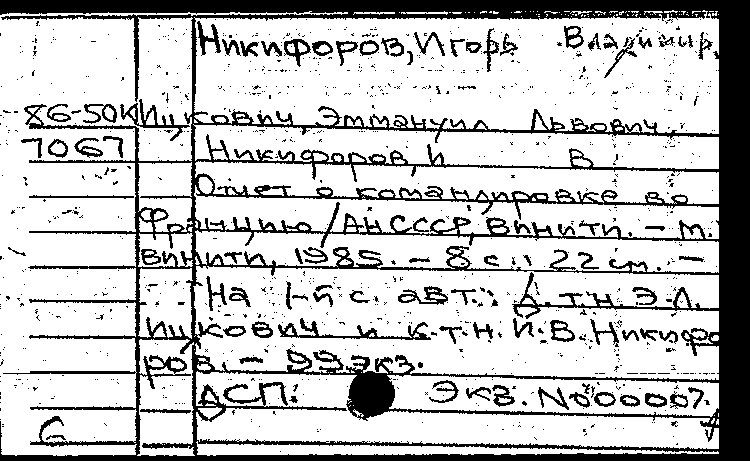 Никифоров, Игорь Владимир.
86-50К Ицкович, Эммануил Львович,
7067 Никифоров, И В
Отчет о командировке во
Францию / АН СССР, ВИНИТИ. - М.:
ВИНИТИ, 1985. - 8 с.; 22 см. -
На 1-й с. авт.: д.т.н. Э.Л.
Ицкович и к.т.н. И.В. Никифо
ров. - 99 экз.
ДСП: Экз. N 000007.